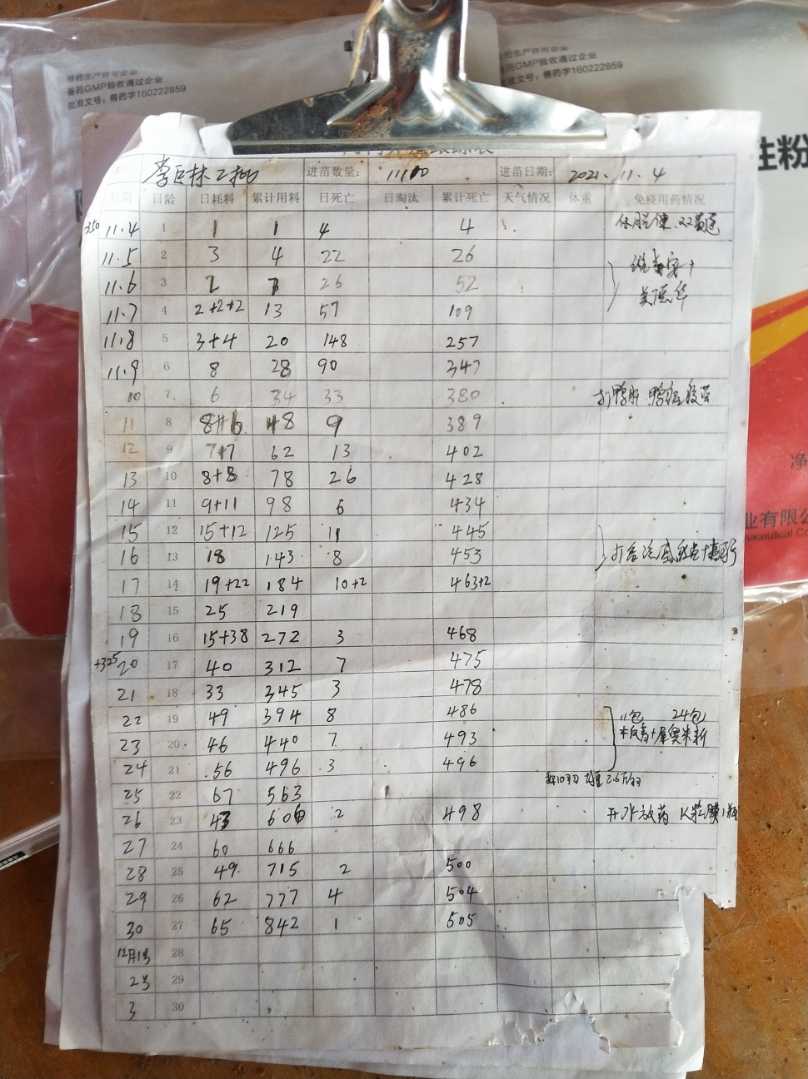 兽药GMP验收通过企业
批准文号：兽药字160222859
兽药GMP验收通过企业
批准文号：兽药字160222859
生粉
净
业有限公
进苗数量： 11100 进苗日期： 2021.11.4
日期 日龄 日耗料 累计用料 日死亡 日淘汰 累计死亡 天气情况 体重 免疫用药情况
11.4 1 1 1 4 4
11.5 2 3 4 22 26
11.6 3 2 7 26 52
11.7 4 2+2+2 13 57 109
11.8 5 3+4 20 148 257
11.9 6 8 28 90 347
10 7 6 34 33 380
11 8 8+6 48 9 389
12 9 7+7 62 13 402
13 10 8+8 78 26 428
14 11 9+11 98 6 434
15 12 15+12 125 11 445
16 13 18 143 8 453
17 14 19+22 184 10+2 463+2
18 15 25 219
19 16 15+38 272 3 468
+325 20 17 40 312 7 475
21 18 33 345 3 478
22 19 49 394 8 486 11包 24包
23 20 46 440 7 493
24 21 56 496 3 496
25 22 67 563
26 23 43 606 2 498
27 24 60 666
28 25 49 715 2 500
29 26 62 777 4 504
30 27 65 842 1 505
12月1号 28
2号 29
3 30